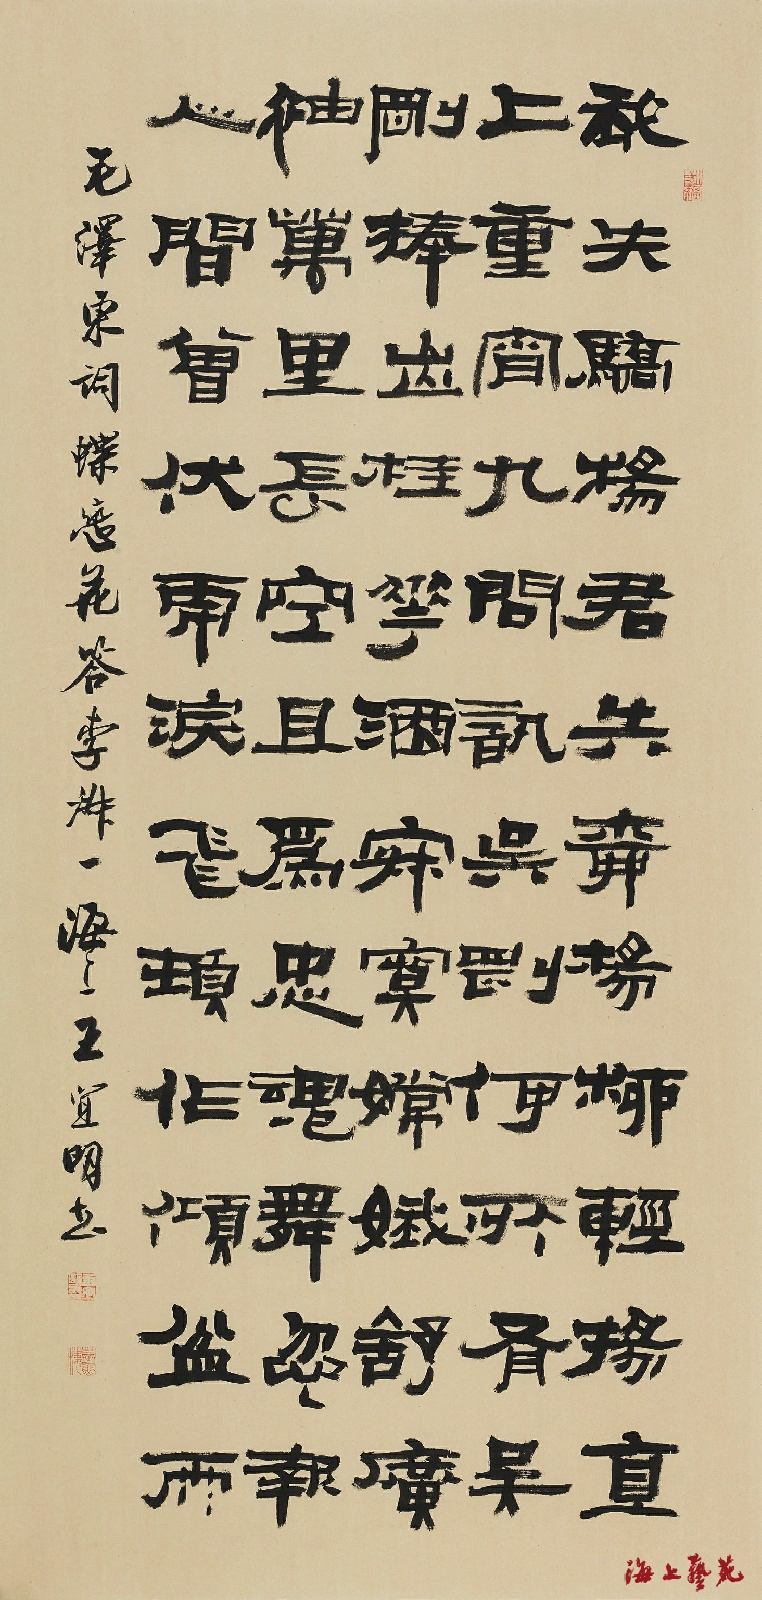 我失驕楊君失柳楊柳輕揚直
上重宵九問訊吳剛何所有吳
剛捧出桂花酒寂寞嫦娥舒廣
袖萬里長空且為忠魂舞忽報
人間曾伏虎淚飛頓作傾盆雨
毛澤東詞蝶戀花答李淑一海上王宜明書
海上藝苑